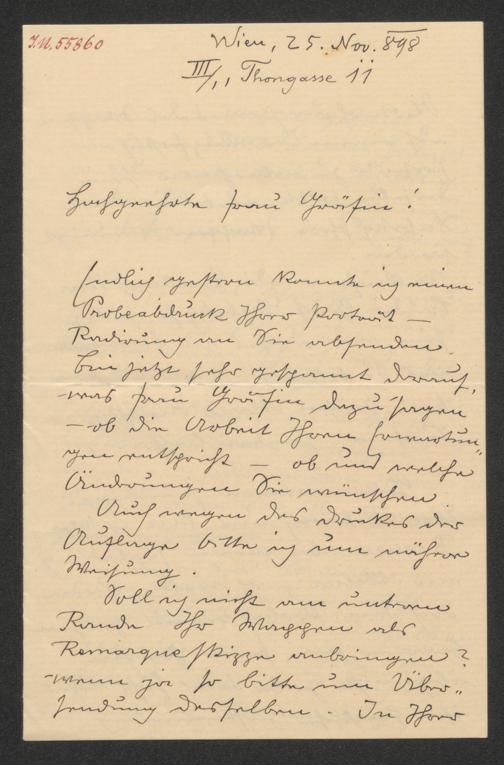 I.N. 55860
Wien, 25. Nov. 898
III/1, Thongasse 11
Hochgeehrte Frau Gräfin!
Endlich gestern konnte ich einen
Probeabdruck Ihrer Porträt-
Radirung an Sie absenden.
Bin jetzt sehr gespannt darauf,
was Frau Gräfin dazu sagen
– ob die Arbeit Ihren Erwartun„
gen entspricht – ob und welche
Änderungen Sie wünschen
Auch wegen des Druckes der
Auflage bitte ich um nähere
Weisung.
Soll ich nicht am unteren
Rande Ihr Wappen als
Remarqueskizze anbringen?
wenn ja so bitte um Über„
sendung desselben. In Ihrer